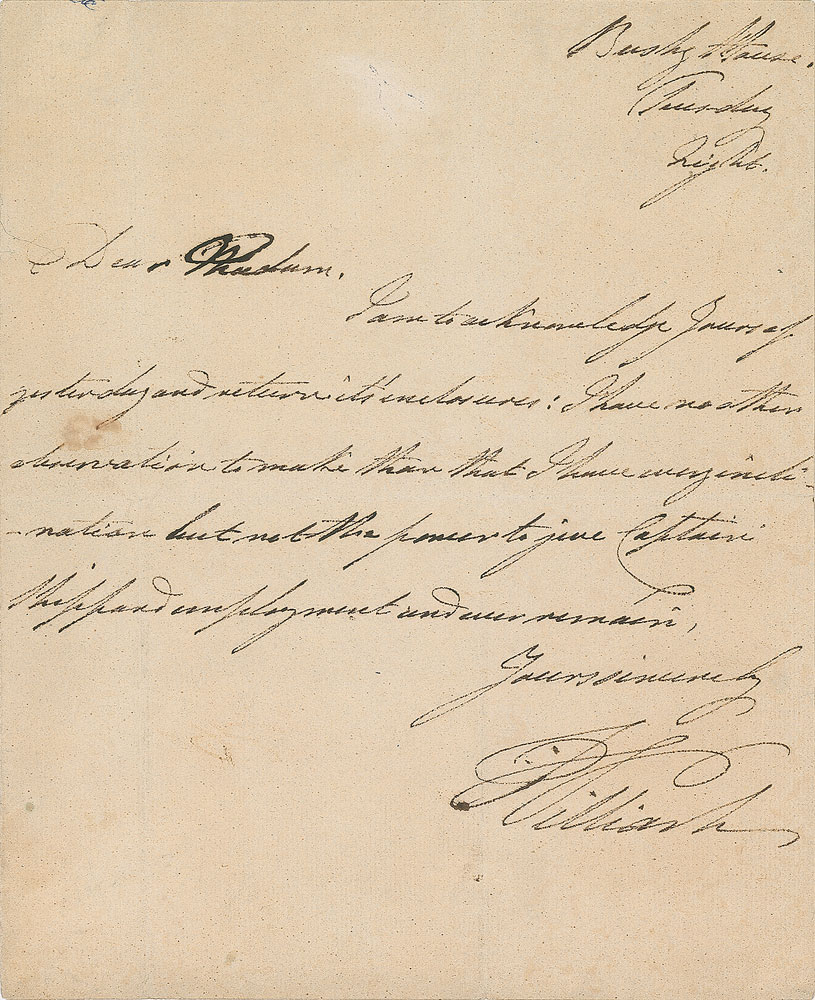 Bushy House.
Tuesday
Night.
Dear Madam.
I am to acknowledge Yours of
yesterday and return it's enclosures: I have no other
observation to make than that I have every incli-
-nation but not the power to give Captain
Sheppard employment and ever remain,
Yours sincerely
William